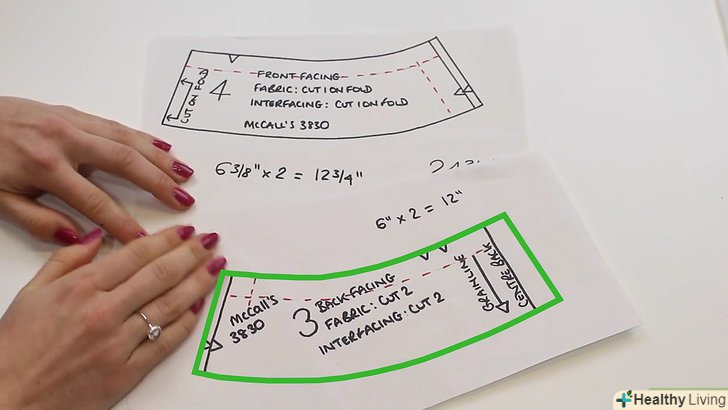 CUT ON FOLD
4
FRONT FACING
FABRIC: CUT 1 ON FOLD
INTERFACING: CUT 1 ON FOLD
McCALL'S 3830
6 3/8" x 2 = 12 3/4"
6" x 2 = 12"
McCall's
3830
3
BACK FACING
FABRIC: CUT 2
INTERFACING: CUT 2
GRAINLINE
CENTRE BACK
Healthy Living